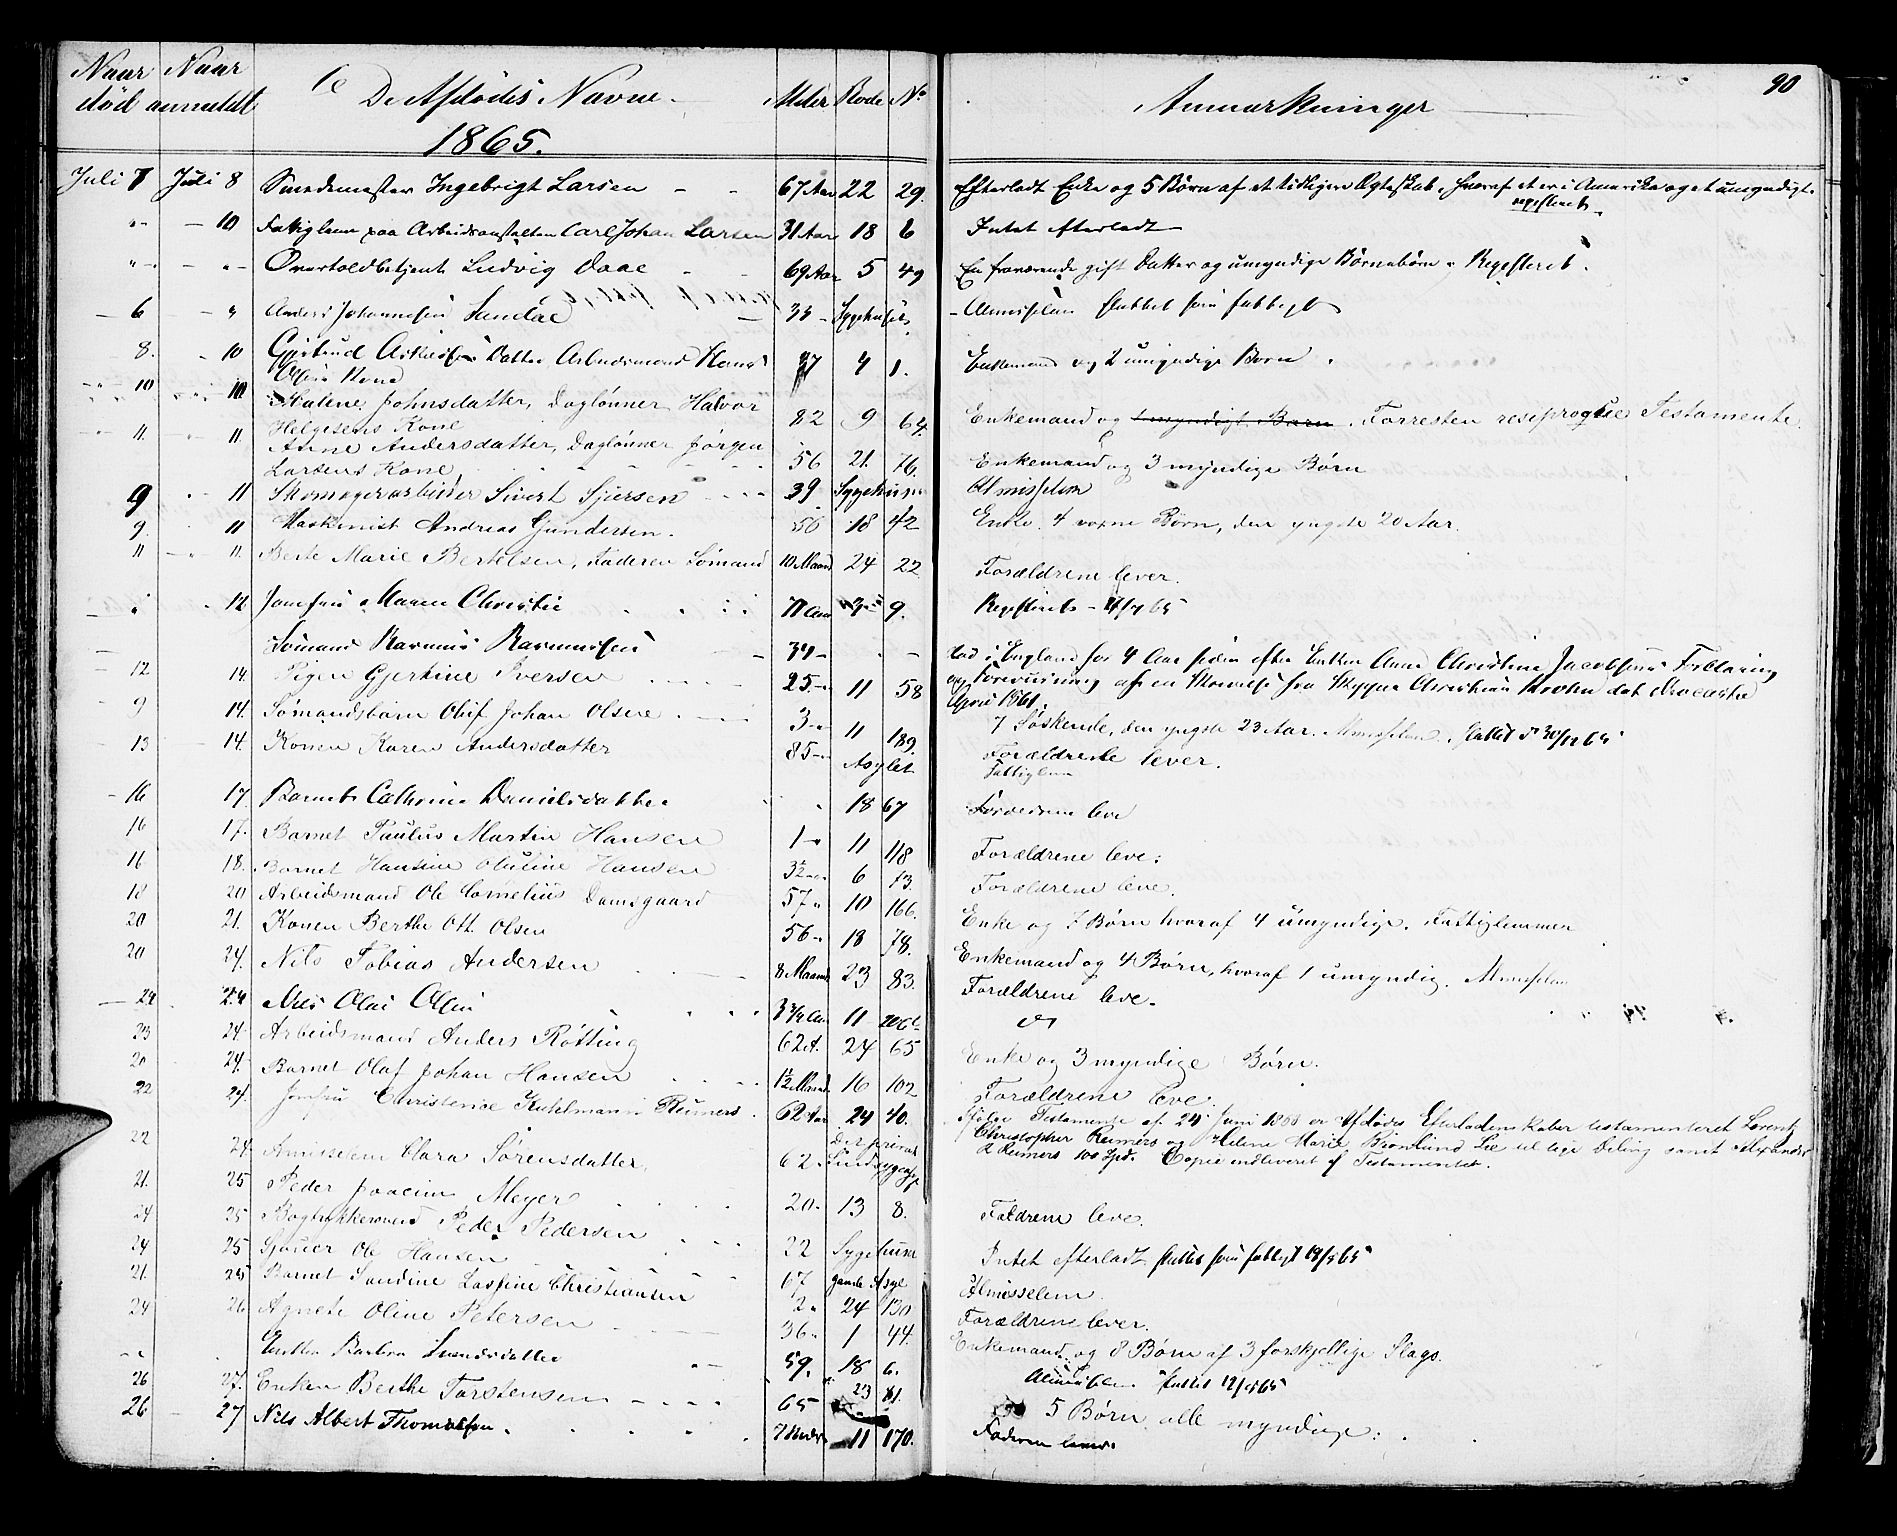 90
Naar død Naar anmeldt De Afdødes Navne. Alder Rode No Anmærkninger
1865.
Juli 7 Juli 8 Smedemester Ingebrigt Larsen 67 Aar 22 29. Efterladt Enke og 5 Børn af et tidligere Ægteskab, hvoraf et er i Amerika og et umyndigt.
registeret
" 10 Fattiglem paa Arbeidsanstalten Carl Johan Larsen 31 Aar 18 6 Intet efterladt
" " Overtoldbetjent Ludvig Daae 69 Aar 5 49 En fraværende gift Datter og umyndige Børnebørn. Registeret.
6 " Anders Johannesen Sandal 34 Sygehuset Almisselem sluttet som fattigt
8. 10 Gjertrud Datter Arbeidsmand Hans
Olsens Kone 37 4 1. Enkemand og 2 umyndige Børn.
10 10 Malene Johnsdatter, Daglønner Halvor
Helgesens Kone 82 9 64. Enkemand og umyndigt Barn. Forresten resiproque Testamente.
11. 11. Anne Andersdatter, Daglønner Jørgen
Larsens Kone 56 21. 76. Enkemand og 3 myndige Børn
9 11 Skomagerarbeider Sivert Sjursen 39 Sygehuset Almisselem
9. 11 Maskinist Andreas Gundersen. 50 18 42 Enke. 4 voxne Børn, den yngste 20 Aar.
11 11. Berte Marie Bertelsen, Faderen Sømand 10 Maand 24 22 Forældrene lever.
" 12 Jomfru Maren Christie 71 Aar 3 9. Registeret 65
Sømand Rasmus Rasmussen 34 død i England for 4 Aar siden efter Enken Anne Christine Jacobsens Forklaring
og Forevisning af en Skrivelse fra Skipper Christian Krohn
April 1861.
12 14 Pigen Gjertine Iversen 25 11 58 7 Søskende, den yngste 23 Aar. Almisselem. sluttet d 30/12 65
9 14. Sømandsbarn Oluf Johan Olsen 3 11 189. Forældrene lever.
13 14. Konen Karen Andersdatter 85 Asylet Fattiglem
16 17 Barnet Cathrine Danielsdatter 18 67 Forældrene leve
16 17. Barnet Paulus Martin Hansen 1 11 118 Forældrene leve.
16 18. Barnet Hansine Oluline Hansen 3½ 6 13. Forældrene leve.
18 20 Arbeidsmand Ole Cornelius Damsgaard 57 10 166. Enke og 7 Børn hvoraf 4 umyndige. Fattiglemmer
20 21. Konen Berthe Ott. Olsen 56 18 78. Enkemand og 4 Børn, hvoraf 1 umyndig. Almisselem
20 24. Nils Tobias Andersen 8 Maand 23 83. Forældrene leve.
24 24 Nils Olai Olsen 3¾ Aar 11 206 do
23 24. Arbeidsmand Anders Røtting 62 A. 24 65 Enke og 3 myndige Børn.
20 24. Barnet Olaf Johan Hansen 1½ Maand 16 102 Forældrene leve.
22 24. Jomfru Christence Kuhlmann Reimers 62 Aar 24 40. Ifølge Testamente af 24 Juni er Afdødes Efterladenskaber testamenteret Lorentz
Christopher Reimers og Helene Marie Lie til lige Deling samt Alexander
R Reimers 100 Spd. Copie indleveret af Testamentet.
22 24 Almisselem Clara Sørensdatter 62 Sindsygeasyl
21. 25 Peder Joacim Meyer 20 13 8. Foreldrene leve.
24 25 Bogtrykkersvend Peder Pedersen 22 Sygehuset Intet efterladt sluttet som fattigt 65
24 25 Sjouer Ole Hansen 67 gamle Asyl Almisselem.
21. 25 Barnet Sandine Lassine Christiansen 2 24 130 Forældrene lever.
24 26 Agnete Oline Petersen 36 1 44. Enkemand og 8 Børn af 3 forskjellige Slags.
Enken Barbra 59. 18 6. Almisselem sluttet 65
26 27. Enken Berthe Torstensen 65 23 81. 5 Børn alle myndige.
26 27 Nils Albert Thomassen. 11 170. Faderen lever.